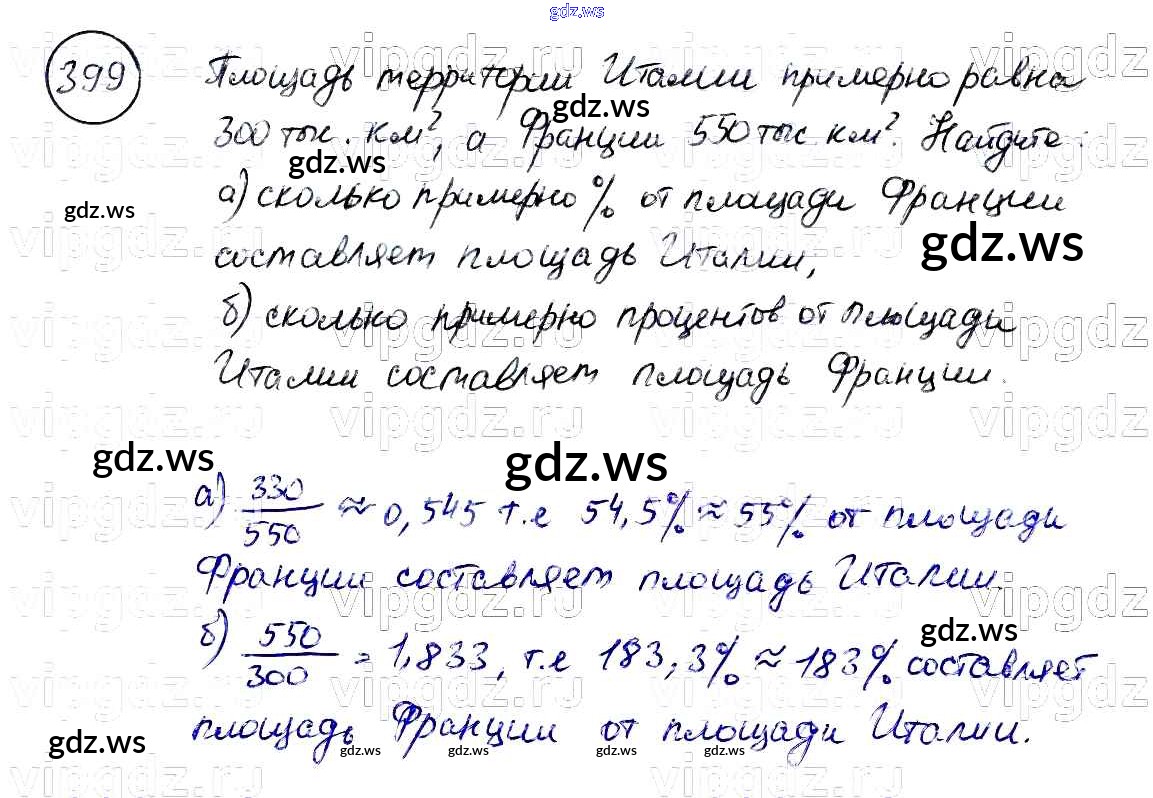 gdz.ws
399 Площадь территории Италии примерно равна
gdz.ws
300 тыс. км², а Франции 550 тыс км². Найдите:
gdz.ws
а) сколько примерно % от площади Франции
gdz.ws
составляет площадь Италии,
gdz.ws
б) сколько примерно процентов от площади
Италии составляет площадь Франции.
gdz.ws gdz.ws
а) 330/550 ≈ 0,545 т.е 54,5% ≈ 55% от площади
Франции составляет площадь Италии.
б) 550/300 = 1,833, т.е 183,3% ≈ 183% составляет
gdz.ws
площадь Франции от площади Италии.
gdz.ws gdz.ws gdz.ws gdz.ws gdz.ws
vipgdz.ru